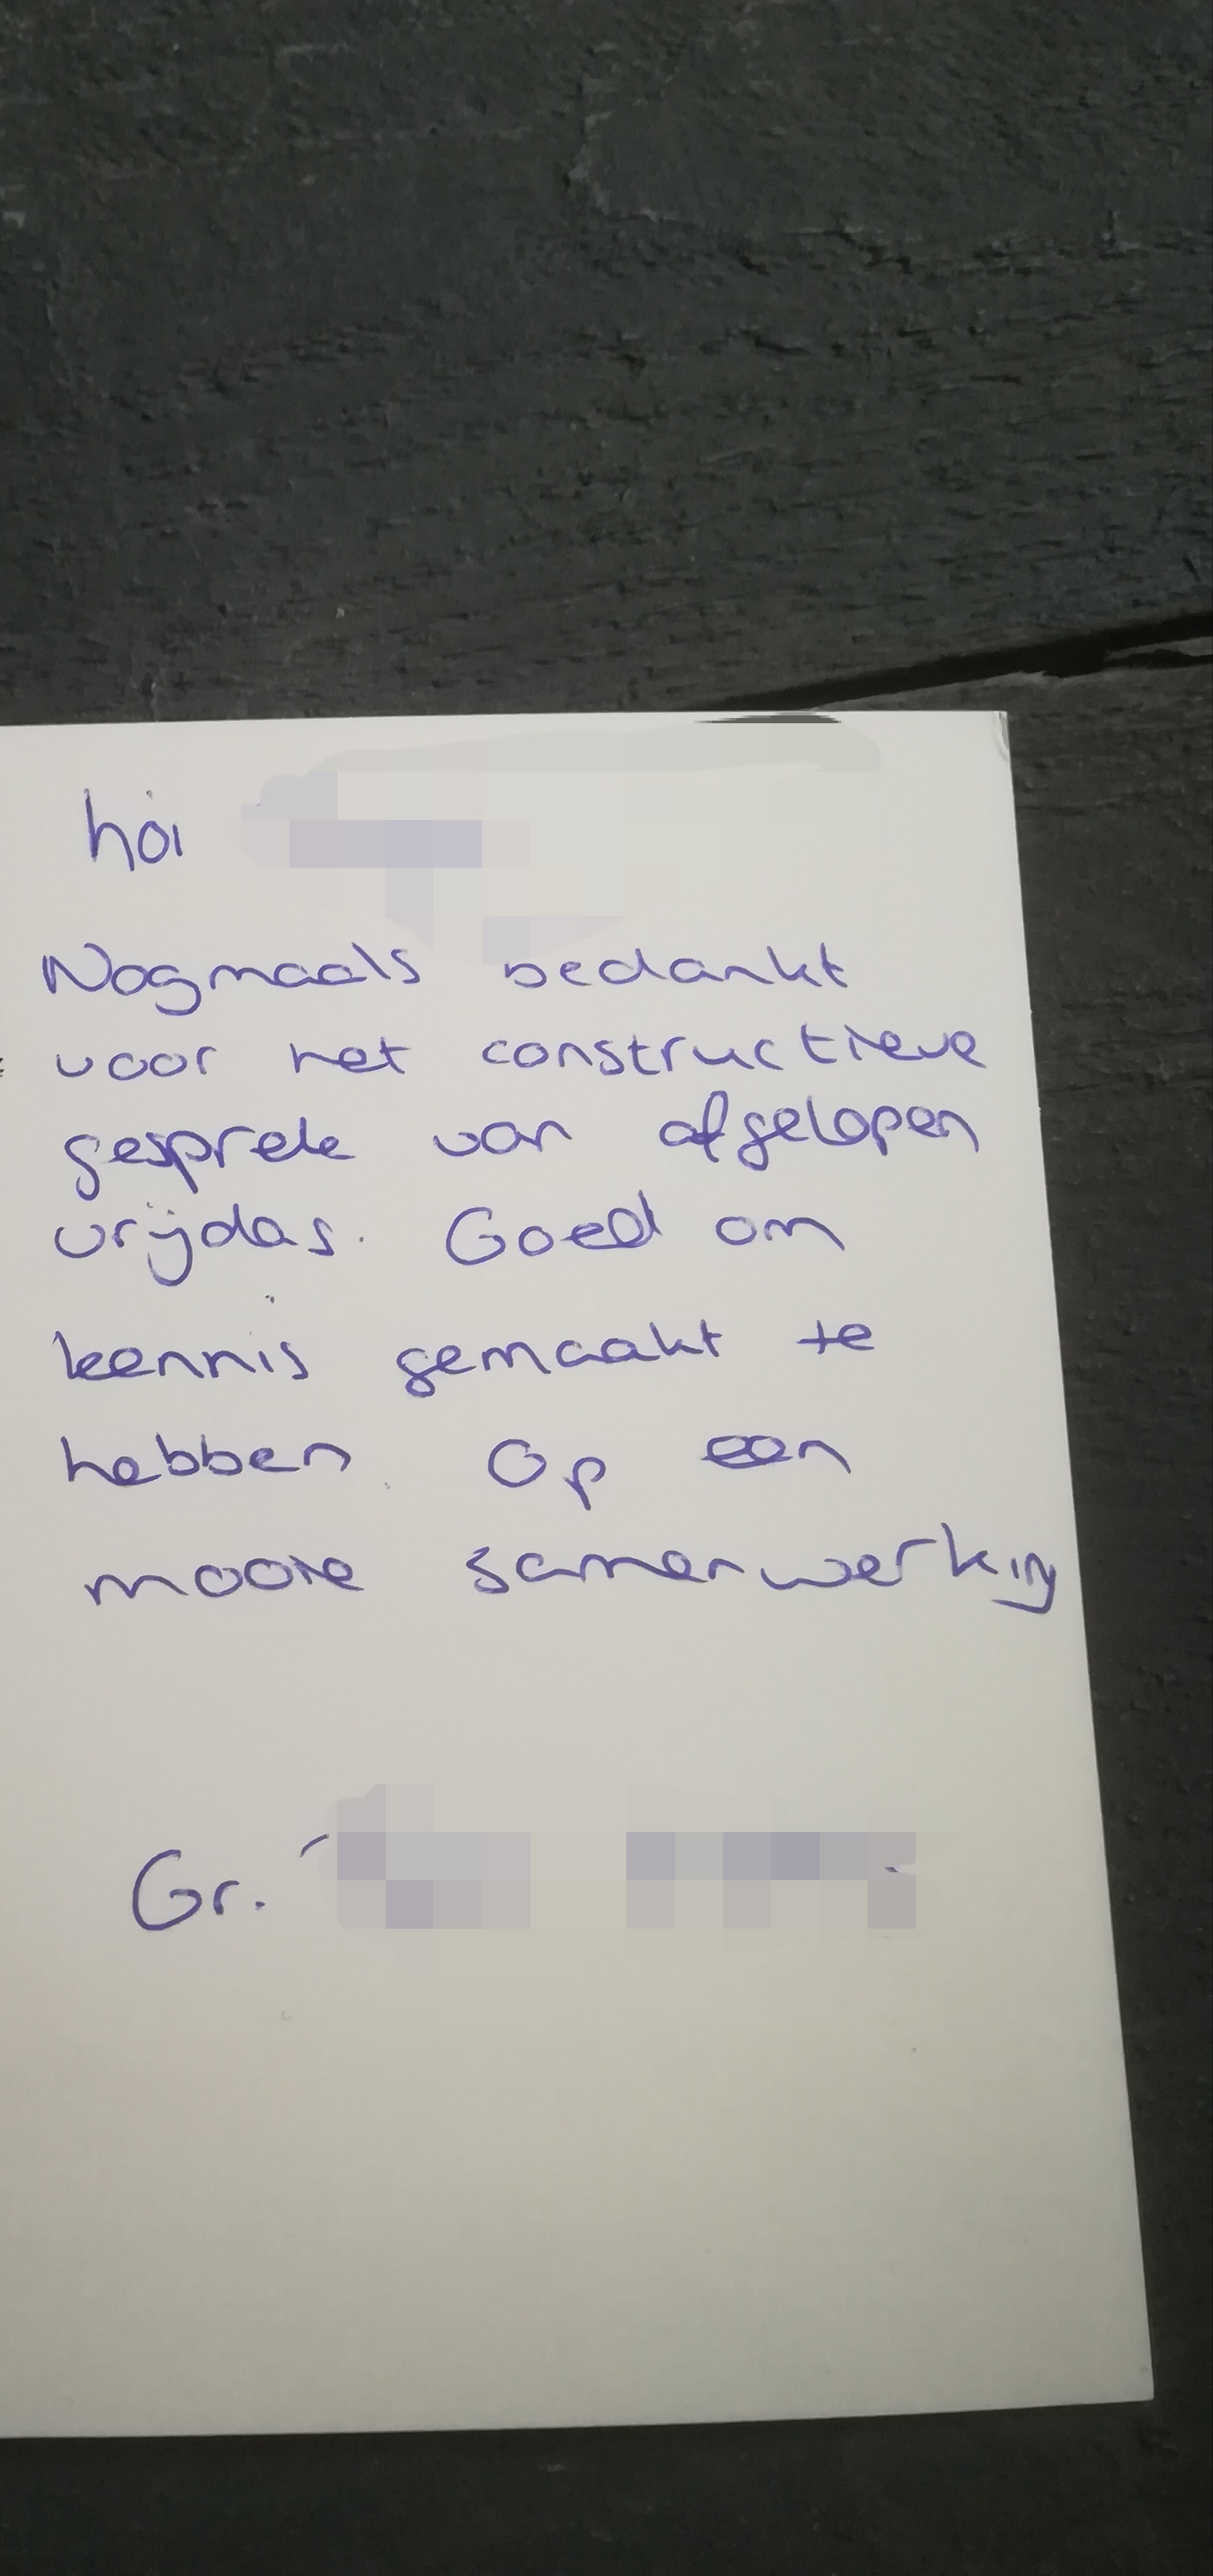 hoi
Nogmaals bedankt
voor het constructieve
gesprek van afgelopen
vrijdag. Goed om
kennis gemaakt te
hebben. Op een
mooie samenwerking
Gr.